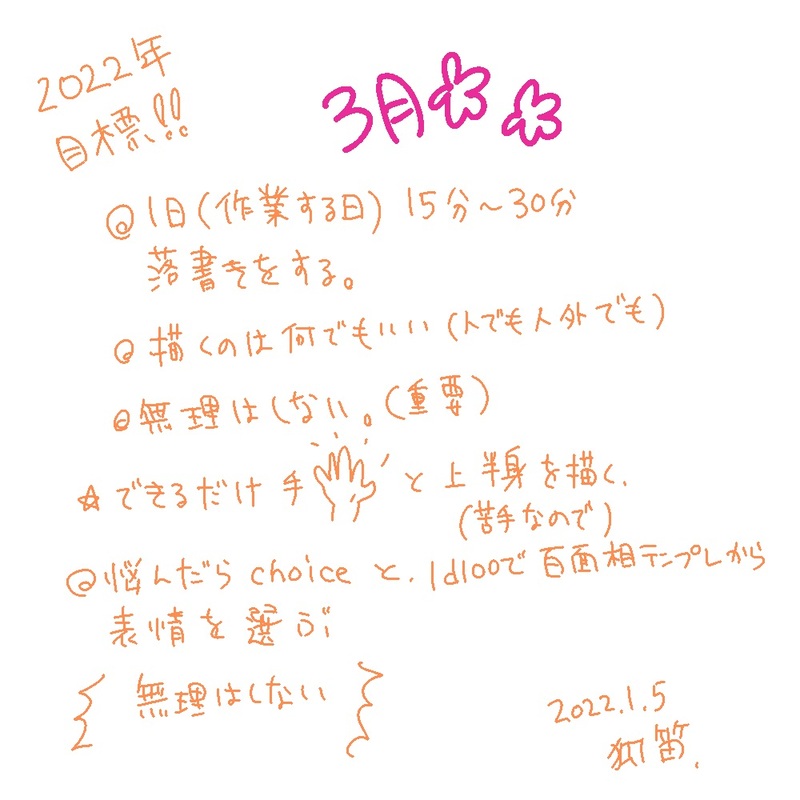 2022年
目標!!
3月
◎1日(作業する日) 15分〜30分
落書きをする。
◎描くのは何でもいい(人でも人外でも)
◎無理はしない。(重要)
☆できるだけ手と上半身を描く、
(苦手なので)
◎悩んだらchoiceと、1d100で百面相テンプレから
表情を選ぶ
無理はしない
2022.1.5
笛.